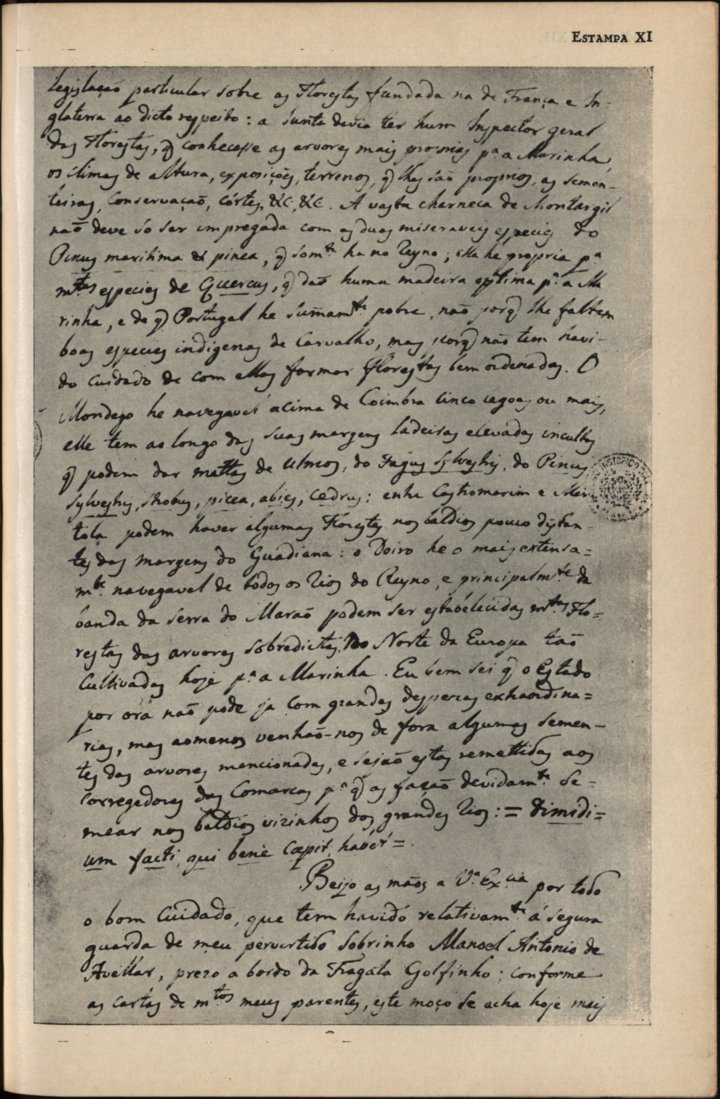 ESTAMPA XI
legislação particular sobre as Florestas fundada na de França e In-
glaterra ao dicto respeito: a Junta devia ter hum Inspector geral
das Florestas, q̃ conhecesse as arvores mais proprias pª a Marinha,
os climas de altura, exposições, terrenos, q̃ lhes são proprios, as semen-
teiras, conservação, córtes, &c, &c. A vasta charneca de Montargil
não deve só ser impregada com as duas miseraveis especies do
Pinus maritima & pinea, q̃ somte ha no Reyno; ella he propria pª
mtas especies de Quercus, q̃ dão huma madeira optima pª a Ma
rinha, e de q̃ Portugal he summamte pobre, não porq̃ lhe faltem
boas especies indigenas de Carvalho, mas porq̃ não tem havi-
do cuidado de com ellas formar florestas bem ordenadas. O
Mondego he navegavel acima de Coimbra cinco legoas ou mais,
elle tem ao longo das suas margens ladeiras elevadas incultas
q̃ podem dar mattas de Ulmos, do Fagus Sylvestris, do Pinus
Sylvestris, Strobus, picea, abies, Cedrus: entre Castromarim e Mer
tola podem haver algumas Florestas nos baldios pouco distan-
tes das margens do Guadiana: o Doiro he o mais extensa=
mte navegavel de todos os Rios do Reyno, e principalmte da
banda da Serra do Marão podem ser estabelecidas mtas Flo-
restas das arvores sobredictas, No Norte da Europa tão
Cultivadas hoje pª a Marinha. Eu bem sei q̃ o Estado
por ora não pode ja com grandes despezas extraordina=
rias, mas aomenos venhão-nos de fora algumas semen-
tes das arvores mencionadas, e sejão estas remettidas aos
Corregedores das Comarcas pª q̃ as fação devidamte Se-
mear nos baldios vizinhos dos grandes Rios: = Dimidi=
um facti, qui bene cœpit, habet =.
Beijo as mãos a Vª Excia por todo
o bom Cuidado, que tem havido relativamte á segura
guarda de meu pervertido Sobrinho Manoel Antonio de
Avellar, prezo a bordo da Fragata Golfinho; conforme
as cartas de mtos meus parentes, este moço se acha hoje mais